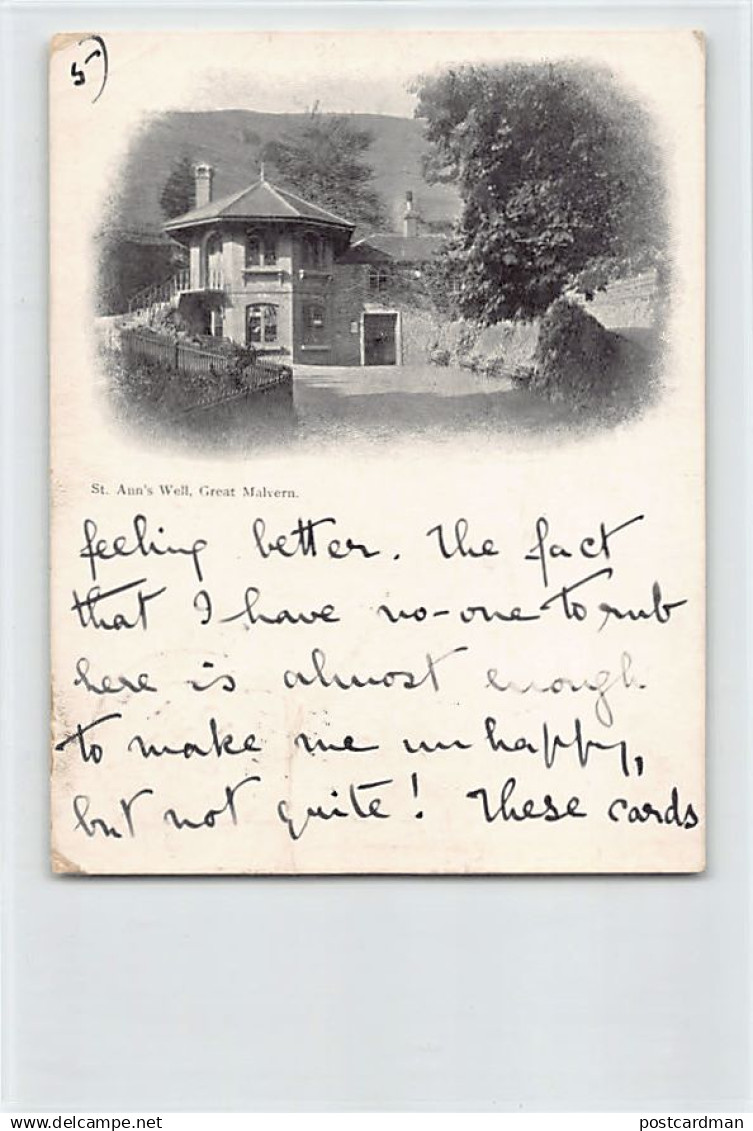 5)
St. Ann's Well, Great Malvern.
feeling better. The fact
that I have no-one to rub
here is almost enough
to make me unhappy,
but not quite! These cards
delcampe.net
postcardman